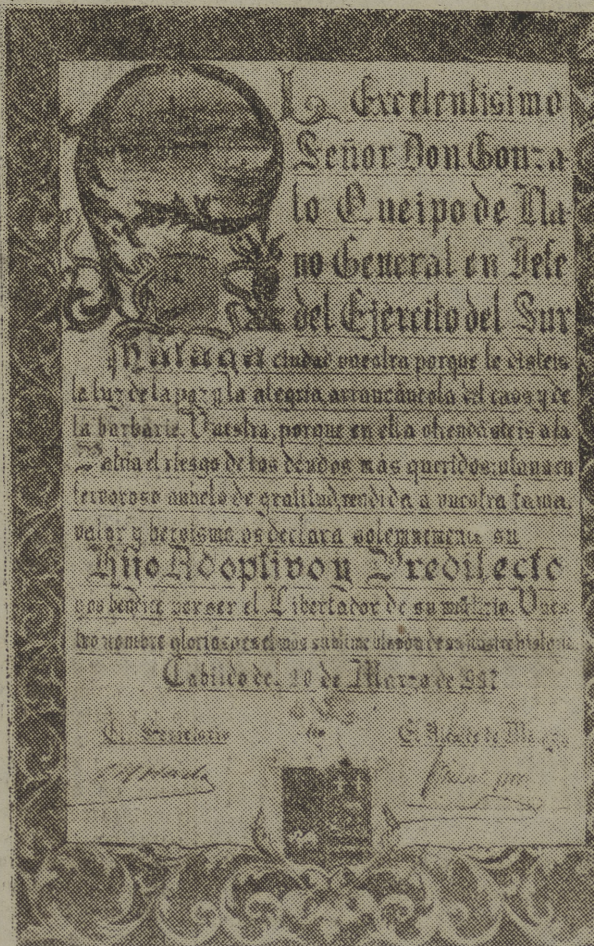 Excelentisimo
Señor Don Gonza-
lo Queipo de Lla-
no General en Jefe
del Ejército del Sur
Málaga ciudad vuestra porque le disteis
la luz de la paz y la alegria arrancándola del caos y de
la barbarie. Vuestra, porque en ella ofrendásteis a la
Patria el riesgo de los deudos más queridos; ufana en
fervoroso anhelo de gratitud rendida a vuestra fama,
valor y heroismo, os declara solemnemente su
Hijo Adoptivo y Predilecto
y os bendice por ser el Libertador de su martirio. Vues-
tro nombre glorioso es el más sublime blasón de su ilustre historia
Cabildo de 10 de Marzo de 937
El Secretario
El Alcalde de Málaga